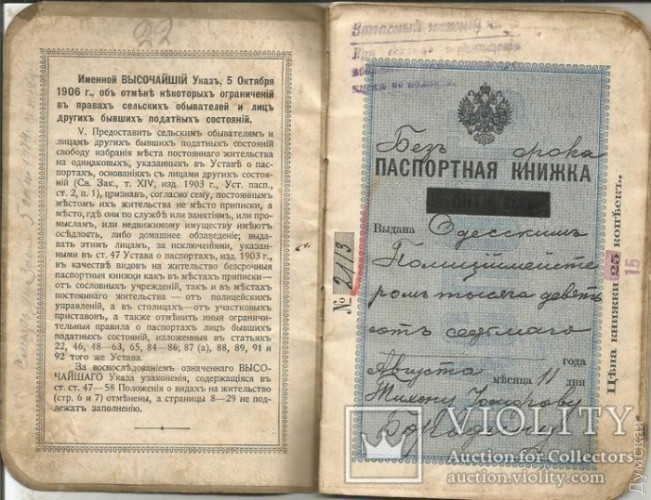 22
Именной ВЫСОЧАЙШІЙ Указ, 5 Октября
1906 г., объ отмѣнѣ нѣкоторыхъ ограниченій
въ правахъ сельскихъ обывателей и лицъ
другихъ бывшихъ податныхъ состояній.
V. Предоставить сельскимъ обывателямъ и
лицамъ другихъ бывшихъ податныхъ состояній
свободу избранія мѣста постояннаго жительства
на одинаковыхъ, указанныхъ въ Уставѣ о пас-
портахъ, основаніяхъ съ лицами другихъ состоя-
ній (Св. Зак., т. XIV, изд. 1903 г., Уст. пасп.,
ст. 2, п. 1), признавъ, согласно сему, постояннымъ
мѣстомъ ихъ жительства не мѣсто приписки, а
мѣсто, гдѣ они по службѣ или занятіямъ, или про-
мысламъ, или недвижимому имуществу имѣютъ
осѣдлость, либо домашнее обзаведеніе; выда-
вать этимъ лицамъ, за исключеніями, указанны-
ми въ ст. 47 Устава о паспортахъ, изд. 1903 г.,
въ качествѣ видовъ на жительство безсрочныя
паспортныя книжки какъ въ мѣстахъ приписки—
отъ сословныхъ учрежденій, такъ и въ мѣстахъ
постояннаго жительства — отъ полицейскихъ
управленій, а въ столицахъ—отъ участковыхъ
приставовъ, а также отмѣнить иныя ограничи-
тельныя правила о паспортахъ лицъ бывшихъ
податныхъ состояній, изложенныя въ статьяхъ
22, 46, 48—63, 65, 84—86, 87 (а), 88, 89, 91 и
92 того же Устава.
За воспослѣдованіемъ означеннаго ВЫСО-
ЧАЙШАГО Указа узаконенія, содержащіяся въ
ст. ст. 47—58 Положенія о видахъ на жительство
(стр. 6 и 7) отмѣнены, а страницы 8—29 не под-
лежатъ заполненію.
Запасный нижній
Безъ срока
ПАСПОРТНАЯ КНИЖКА
Выдана Одесскимъ
Полиціймейсте
ромъ тысяча девять
сотъ седьмаго
года
Августа мѣсяца 11 дня
Тихону
Бородину
№ 2113
Цѣна книжки 25 копѣекъ.
15
VIOLITY
Auction for Collectors
auction.violity.com
Думская